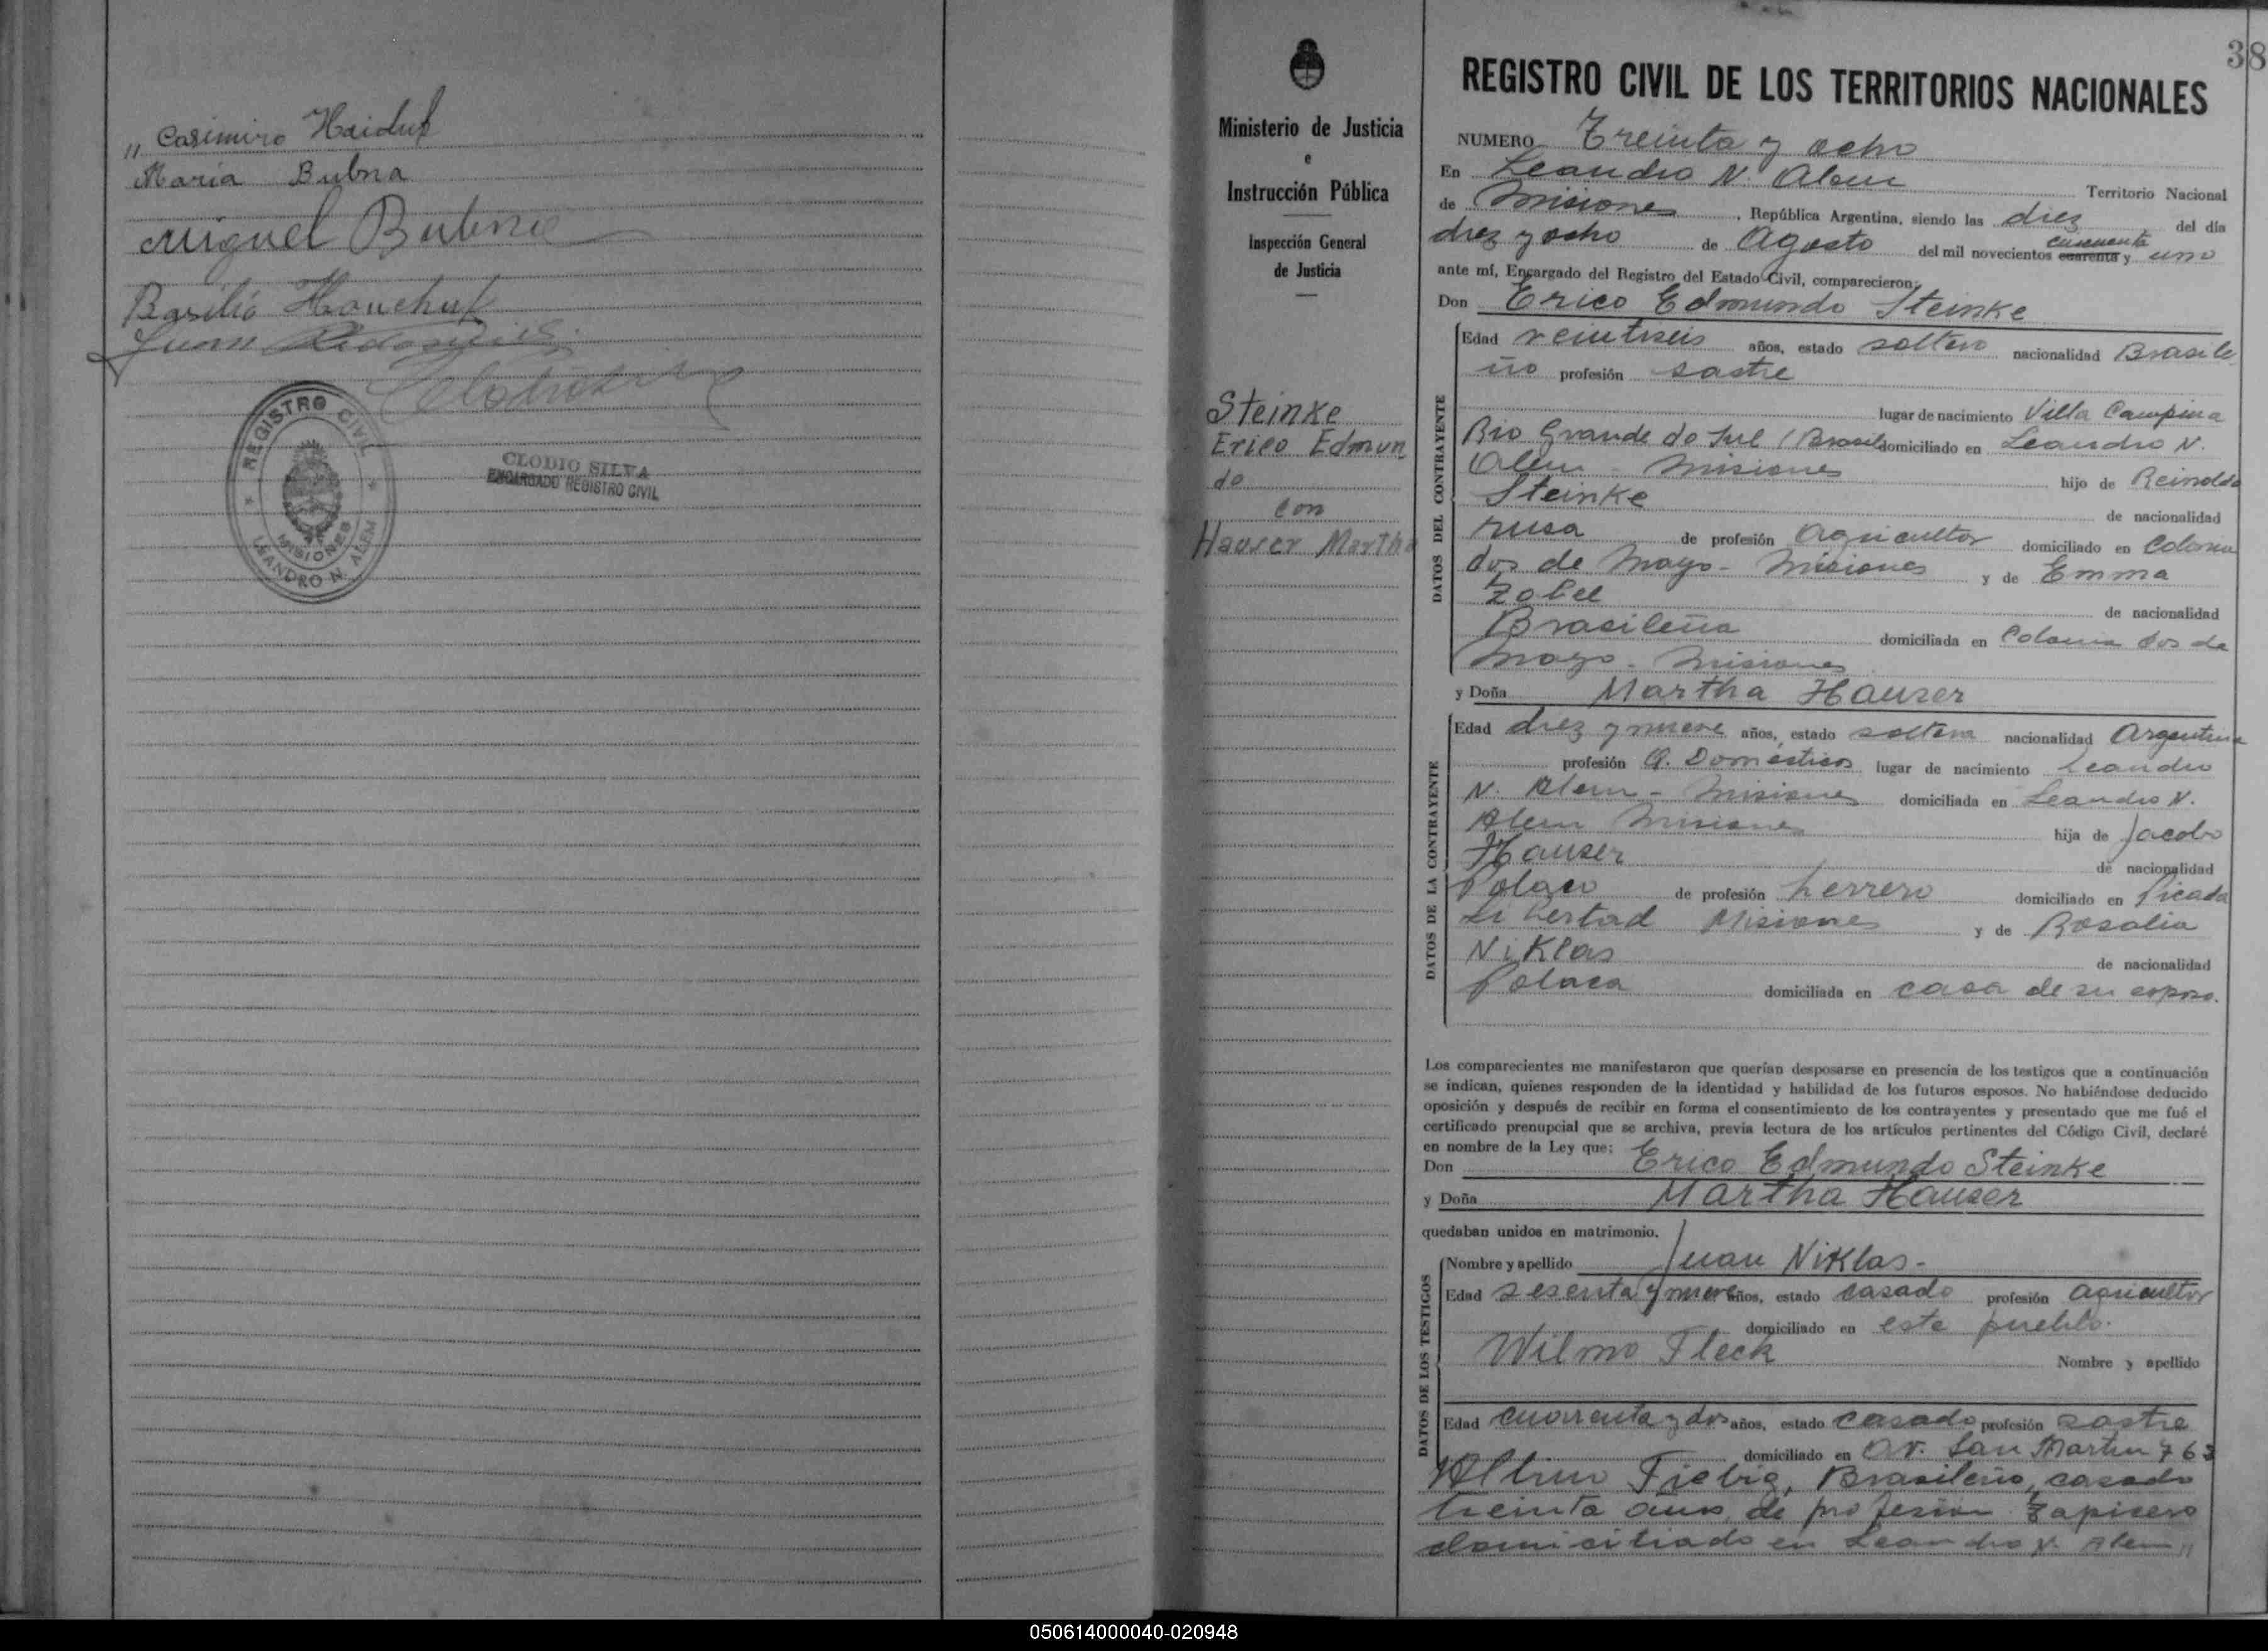 " Casimiro Haiduk
Maria Bubna
Miguel Bubna
Basilio Hauchuk
Juan
REGISTRO CIVIL
MISIONES
LEANDRO N. ALEM
CLODIO SILVA
ENCARGADO REGISTRO CIVIL
Ministerio de Justicia
e
Instrucción Pública
Inspección General
de Justicia
Steinke
Erico Edmun
do
con
Hauser Martha
38
REGISTRO CIVIL DE LOS TERRITORIOS NACIONALES
NUMERO Treinta y ocho
En Leandro N. Alem Territorio Nacional
de Misiones, República Argentina, siendo las diez del día
diez y ocho de Agosto del mil novecientos cuarenta cincuenta y uno
ante mí, Encargado del Registro del Estado Civil, comparecieron:
Don Erico Edmundo Steinke
DATOS DEL CONTRAYENTE
Edad veintiseis años, estado soltero nacionalidad Brasile
ño profesión sastre
lugar de nacimiento Villa Campina
Rio Grande do Sul (Brasil domiciliado en Leandro N.
Alem - Misiones hijo de Reinoldo
Steinke de nacionalidad
rusa de profesión agricultor domiciliado en Colonia
dos de Mayo - Misiones y de Emma
Zobel de nacionalidad
Brasileña domiciliada en Colonia dos de
Mayo - Misiones
y Doña Martha Hauser
DATOS DE LA CONTRAYENTE
Edad diez y nueve años, estado soltera nacionalidad Argentina
profesión Q. Domésticos lugar de nacimiento Leandro
N. Alem - Misiones domiciliada en Leandro N.
Alem Misiones hija de Jacobo
Hauser de nacionalidad
Polaco de profesión herrero domiciliado en Picada
Libertad Misiones y de Rosalia
Niklas de nacionalidad
Polaca domiciliada en casa de su esposo.
Los comparecientes me manifestaron que querían desposarse en presencia de los testigos que a continuación
se indican, quienes responden de la identidad y habilidad de los futuros esposos. No habiéndose deducido
oposición y después de recibir en forma el consentimiento de los contrayentes y presentado que me fué el
certificado prenupcial que se archiva, previa lectura de los artículos pertinentes del Código Civil, declaré
en nombre de la Ley que:
Don Erico Edmundo Steinke
y Doña Martha Hauser
quedaban unidos en matrimonio.
DATOS DE LOS TESTIGOS
Nombre y apellido Juan Niklas -
Edad sesenta y nueve años, estado casado profesión agricultor
domiciliado en este pueblo.
Wilmo Fleck Nombre y apellido
Edad cuarenta y dos años, estado casado profesión sastre
domiciliado en Av. San Martin 763
Albino Fiebig, Brasileño, casado
treinta años de profesion Tapicero
domicitiado en Leandro N. Alem "
050614000040-020948